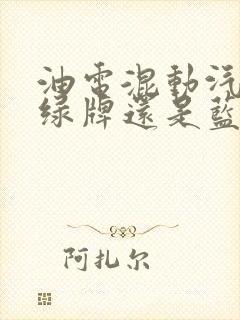 油電混動汽
绿牌還是藍
阿扎尔